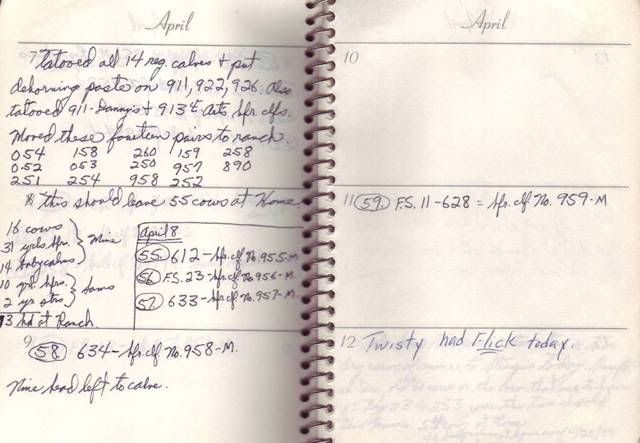 April
7 Tatooed all 14 reg. calves & put
dehorning paste on 911, 922, 926. Also
tatooed 911-Danny's & 913
hfr. clfs.
Moved these fourteen pairs to ranch.
054 158 260 159 258
052 053 250 957 890
251 254 958 252
8 this should leave 55 cows at Home
16 cows
31 yrls. hfr.
14 baby calves
Mine
10 yrl. hfrs.
2 yr. strs.
Sams
73 hd at Ranch.
April 8
55 612-hfr. clf No. 955-M.
56 F.S. 23-hfr. clf No 956-M.
57 633-hfr clf No. 957-M.
9 58 634-hfr. clf No. 958-M.
Nine head left to calve.
April
10
11 59 F.S. 11-628 = hfr. clf No. 959-M
12 Twisty had Flick today.